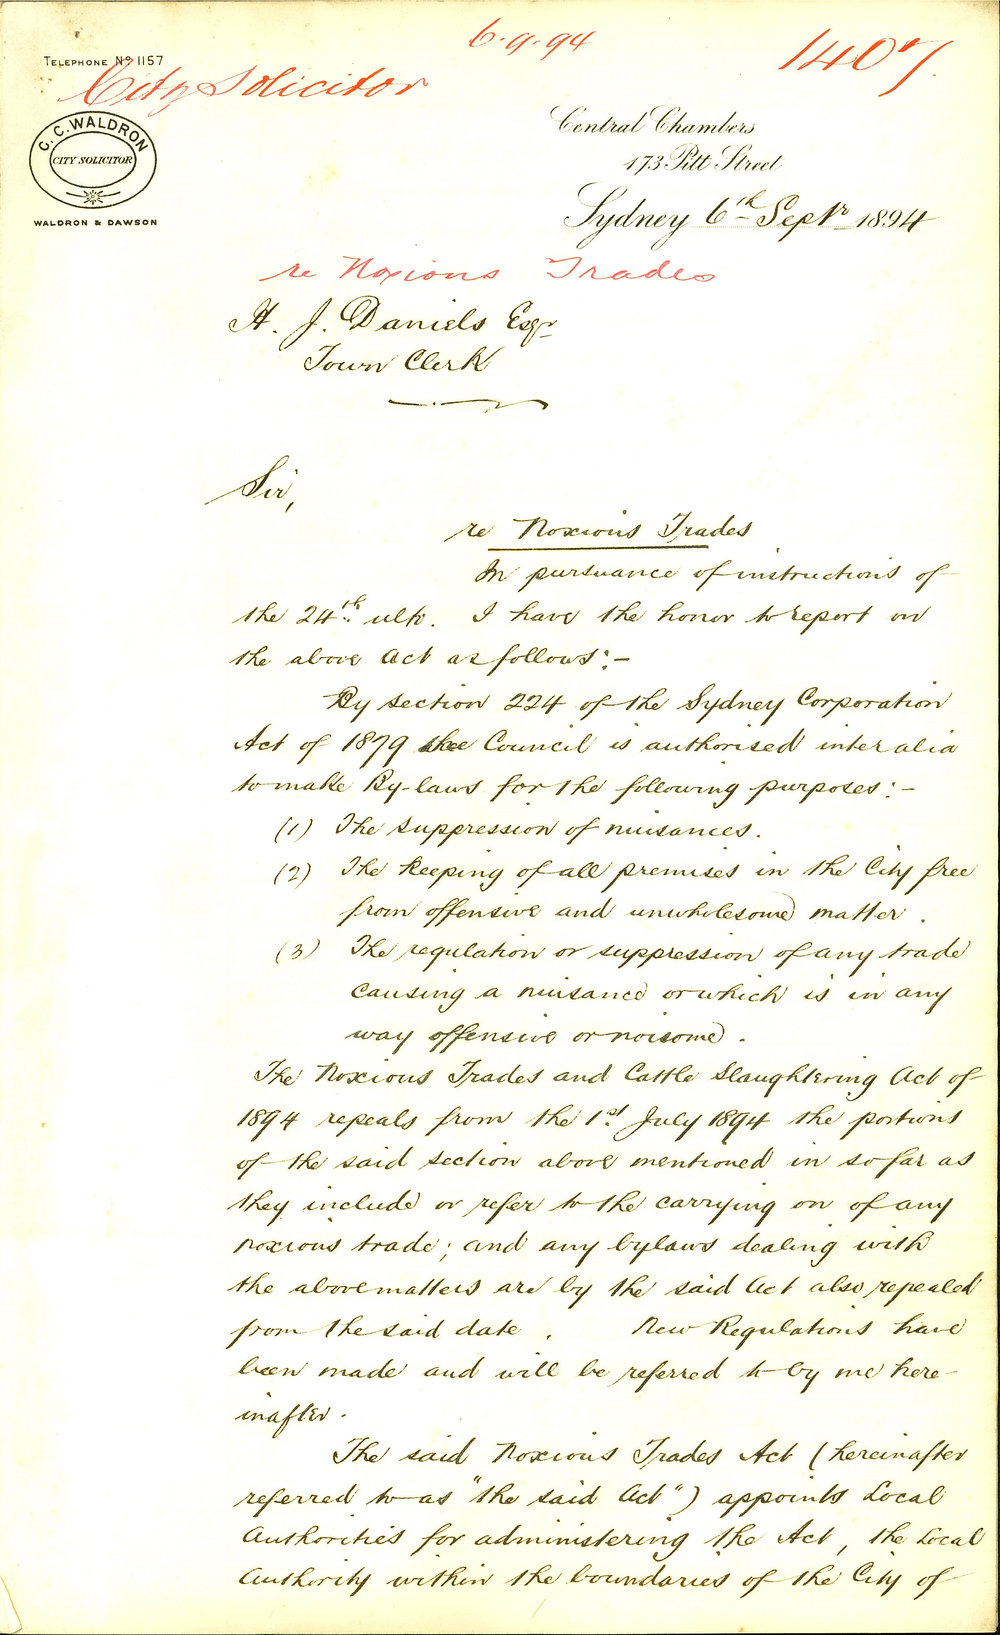 6.9.94
1407.
TELEPHONE No 1157
City Solicitor
C.C. WALDRON
CITY SOLICITOR
WALDRON & DAWSON
Central Chambers
173 Pitt Street
Sydney 6th Septr 1894
re Noxious Trades
H. J. Daniels Esqr
Town Clerk
Sir,
re Noxious Trades
In pursuance of instructions of
the 24th ulto. I have the honor to report on
the above Act as follows:-
By section 224 of the Sydney Corporation
Act of 1879 the Council is authorised inter alia
to make By-laws for the following purposes:-
(1) The suppression of nuisances.
(2) The keeping of all premises in the City free
from offensive and unwholesome matter.
(3) The regulation or suppression of any trade
causing a nuisance or which is in any
way offensive or noisome.
The Noxious Trades and Cattle Slaughtering Act of
1894 repeals from the 1st July 1894 the portions
of the said section above mentioned in so far as
they include or refer to the carrying on of any
noxious trade; and any bylaws dealing with
the above matters are by the said Act also repealed
from the said date. New Regulations have
been made and will be referred to by me here-
inafter.
The said Noxious Trades Act (hereinafter
referred to as "the said Act") appoints Local
Authorities for administering the Act, the Local
Authority within the boundaries of the City of